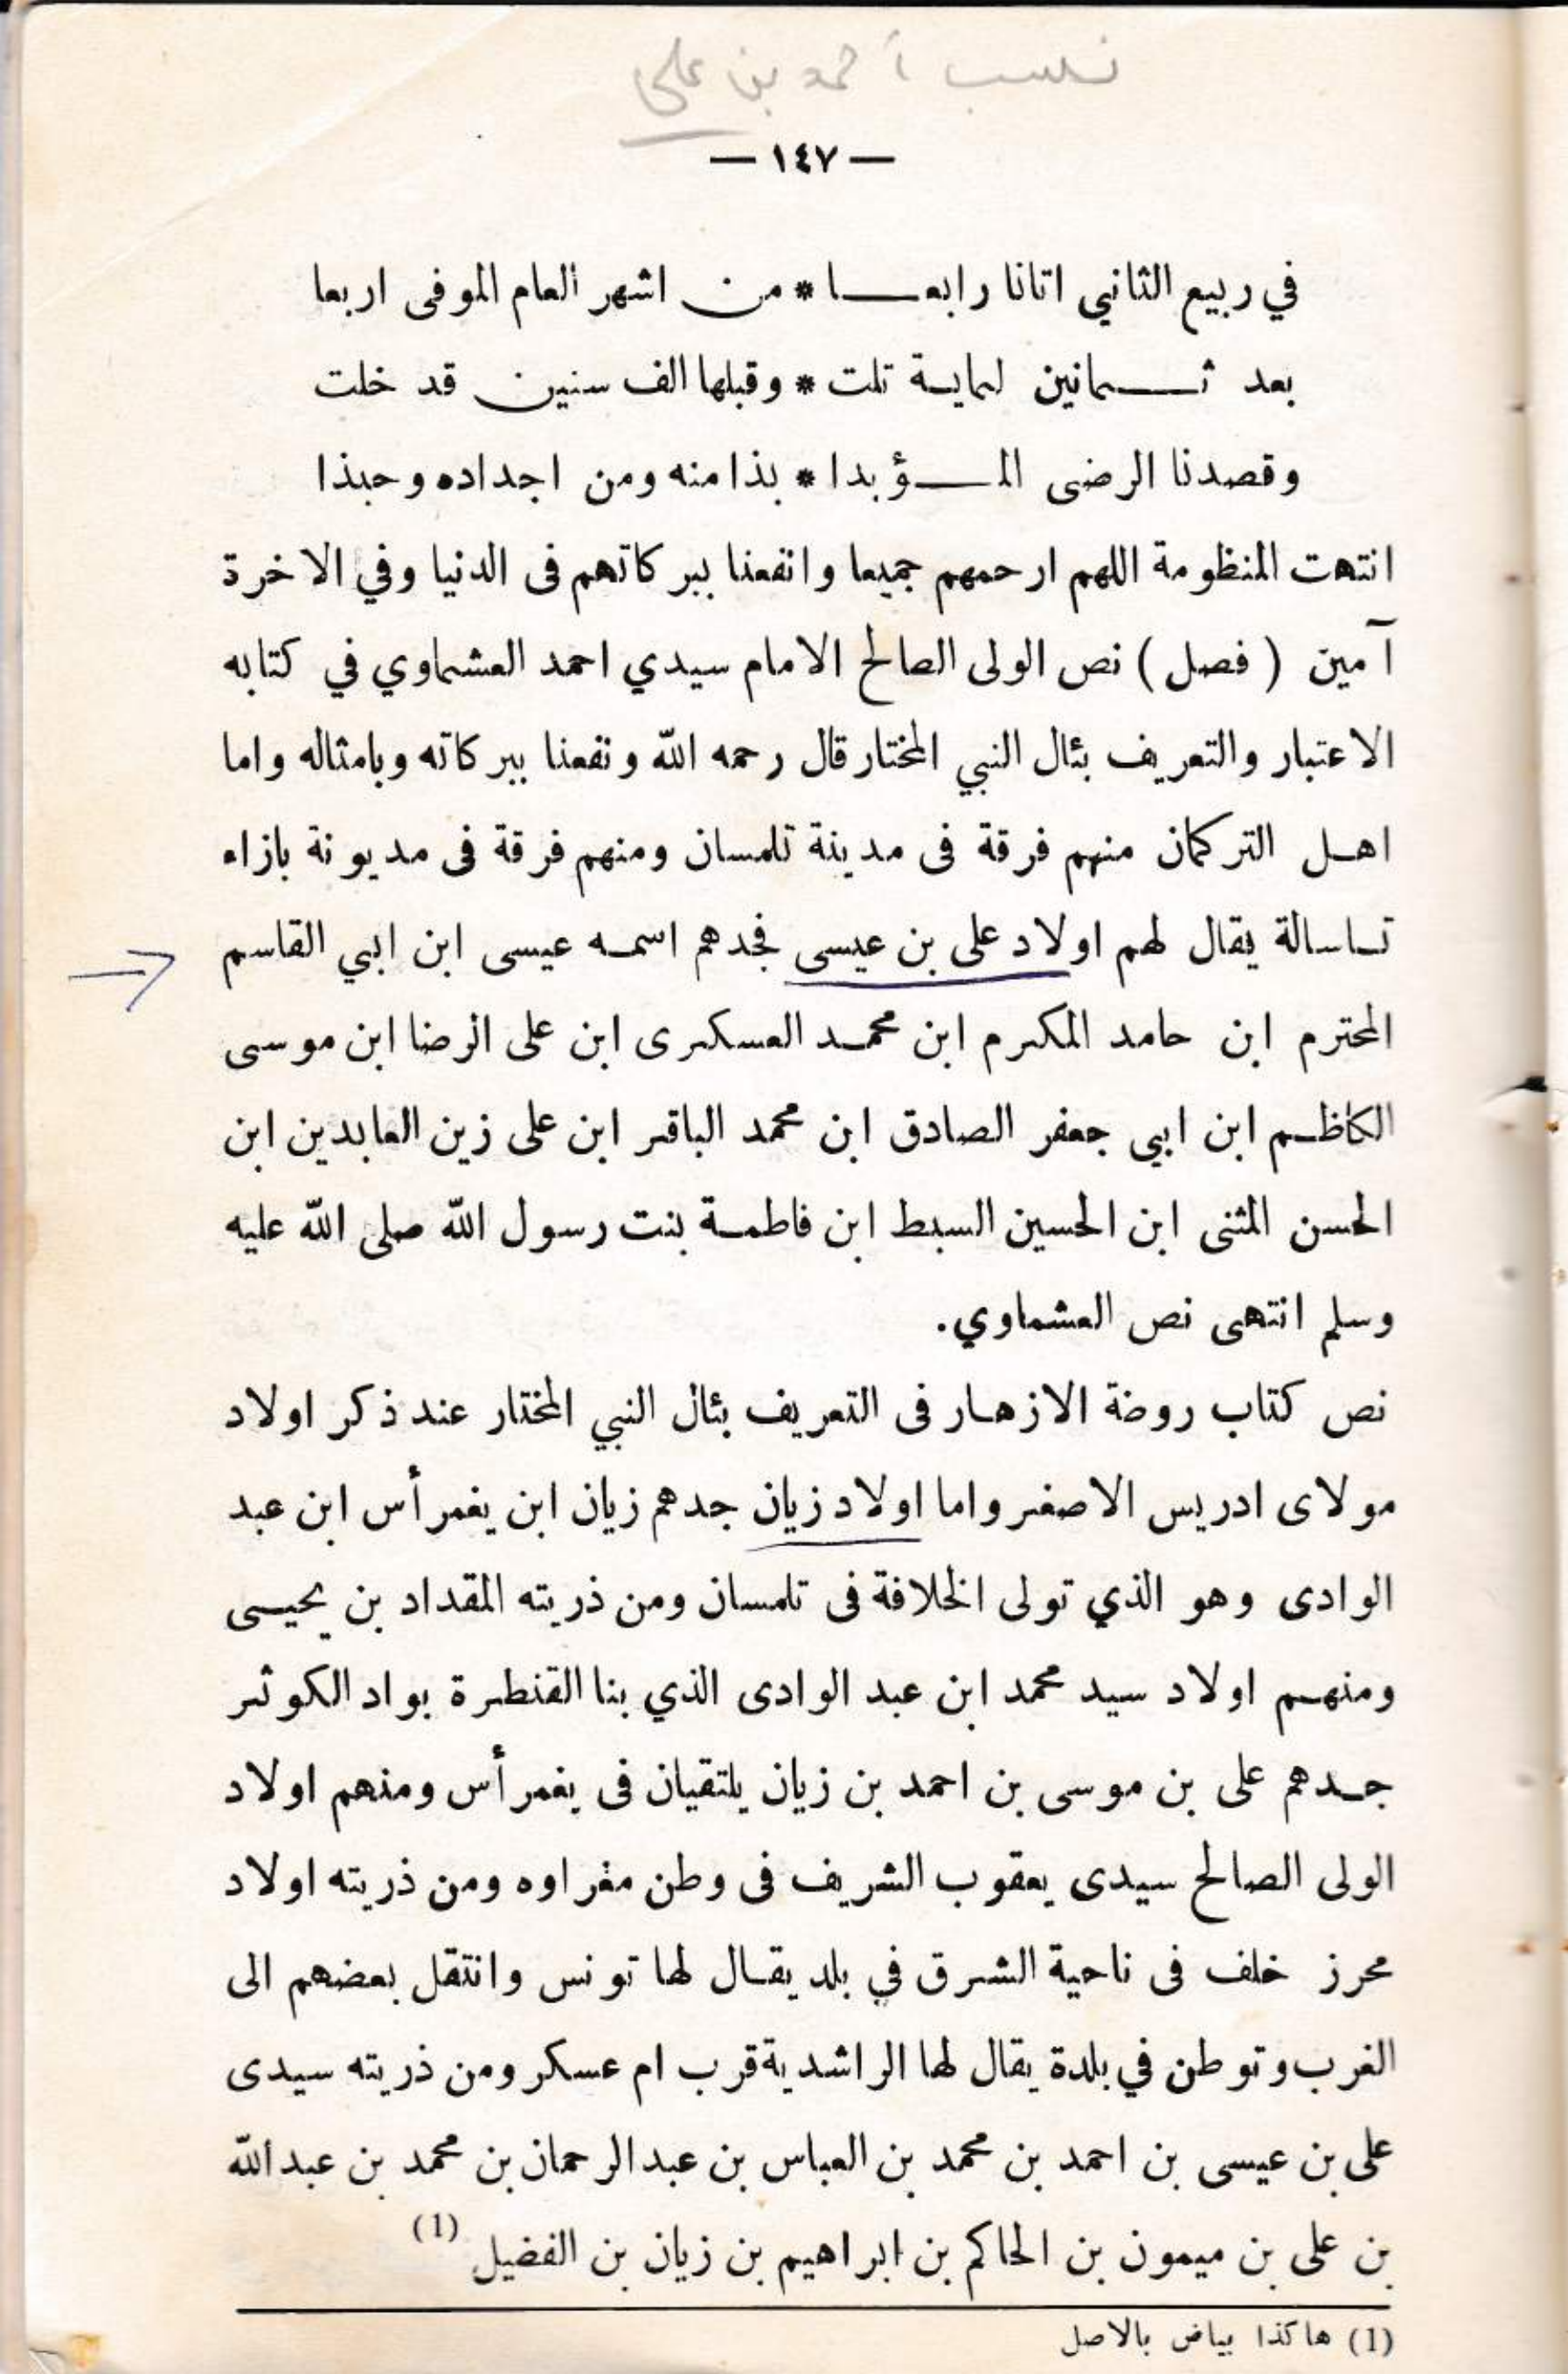 نسب أحمد بن علي
— ١٤٧ —
في ربيع الثاني اتانا رابعـــا * من اشهر العام الموفى اربعا
بعد ثـــمانين لماية تلت * وقبلها الف سنين قد خلت
وقصدنا الرضى المـــؤبدا * بذا منه ومن اجداده وحبذا
انتهت المنظومة اللهم ارحمهم جميعا وانفعنا ببركاتهم فى الدنيا وفي الاخرة
آمين ( فصل ) نص الولى الصالح الامام سيدي احمد العشماوي في كتابه
الاعتبار والتعريف بئال النبي المختار قال رحمه الله ونفعنا ببركاته وبامثاله واما
اهـل التركمان منهم فرقة فى مدينة تلمسان ومنهم فرقة فى مديونة بازاء
تـاسالة يقال لهم اولاد على بن عيسى فجدهم اسمـه عيسى ابن ابي القاسم
المحترم ابن حامد المكرم ابن محمـد العسكرى ابن على الرضا ابن موسى
الكاظـم ابن ابي جعفر الصادق ابن محمد الباقر ابن على زين العابدين ابن
الحسن المثنى ابن الحسين السبط ابن فاطمـة بنت رسول الله صلى الله عليه
وسلم انتهى نص العشماوي.
نص كتاب روضة الازهـار فى التعريف بئال النبي المختار عند ذكر اولاد
مولاى ادريس الاصغر واما اولاد زيان جدهم زيان ابن يغمرأس ابن عبد
الوادى وهو الذي تولى الخلافة فى تلمسان ومن ذريته المقداد بن يحيـى
ومنهـم اولاد سيد محمد ابن عبد الوادى الذي بنا القنطرة بواد الكوثر
جـدهم على بن موسى بن احمد بن زيان يلتقيان فى يغمرأس ومنهم اولاد
الولى الصالح سيدى يعقوب الشريف فى وطن مغراوه ومن ذريته اولاد
محرز خلف فى ناحية الشرق في بلد يقـال لها تونس وانتقل بعضهم الى
الغرب وتوطن في بلدة يقال لها الراشدية قرب ام عسكر ومن ذريته سيدى
على بن عيسى بن احمد بن محمد بن العباس بن عبد الرحمان بن محمد بن عبد الله
بن على بن ميمون بن الحاكم بن ابراهيم بن زيان بن الفضيل (1)
(1) هاكذا بياض بالاصل